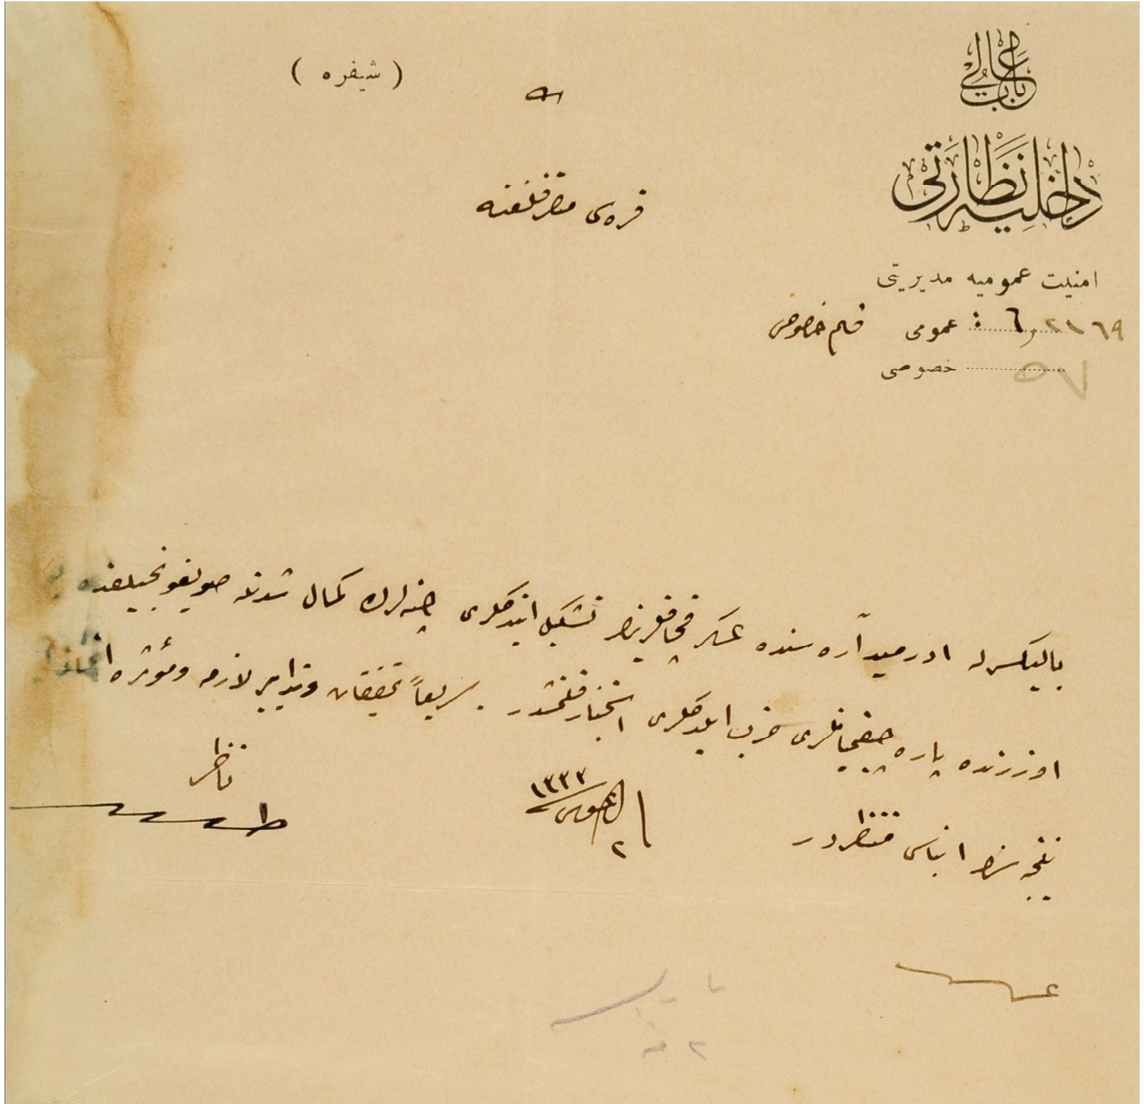 باب عالی
داخلیه نظارتی
امنیت عمومیه مدیریتی
عمومی ٢١٦٩ قلم خصوصی
خصوصی ٥٧
( شیفره )
قره‌سی متصرفلغنه
بالیکسرله ادرمید آره‌سنده عسکر قچاقلرینك تشکیل ایتدکلری چته‌لرك کمال شدتله صویغونجیلغده
اوزرنده پاره چفتجیلری ضرب ایلدکلری استخبار قلنمشدر . سریعاً تحقیقات وتدابیر لازمه ومؤثره اتخاذیله
نتیجه‌سنك انباسی منتظردر
فی ٢ اغستوس ١٣٣٣
ناظر
طلعت